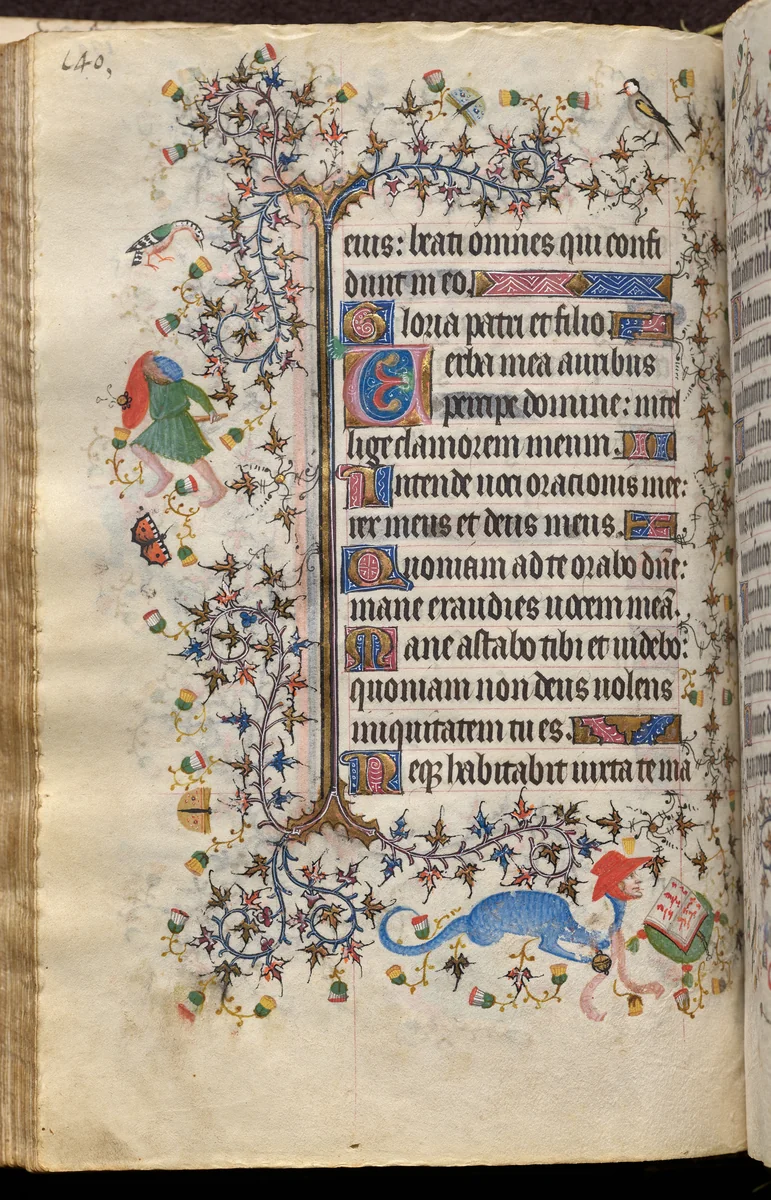 640,
eius: beati omnes qui confi
dunt in eo.
Gloria patri et filio
Verba mea auribus
percipe domine: intel
lige clamorem meum.
Intende uoci orationis mee:
rex meus et deus meus.
Quoniam ad te orabo dn̄e:
mane exaudies uocem meā.
Mane astabo tibi et uidebo:
quoniam non deus uolens
iniquitatem tu es.
Neqꝫ habitabit iuxta te ma